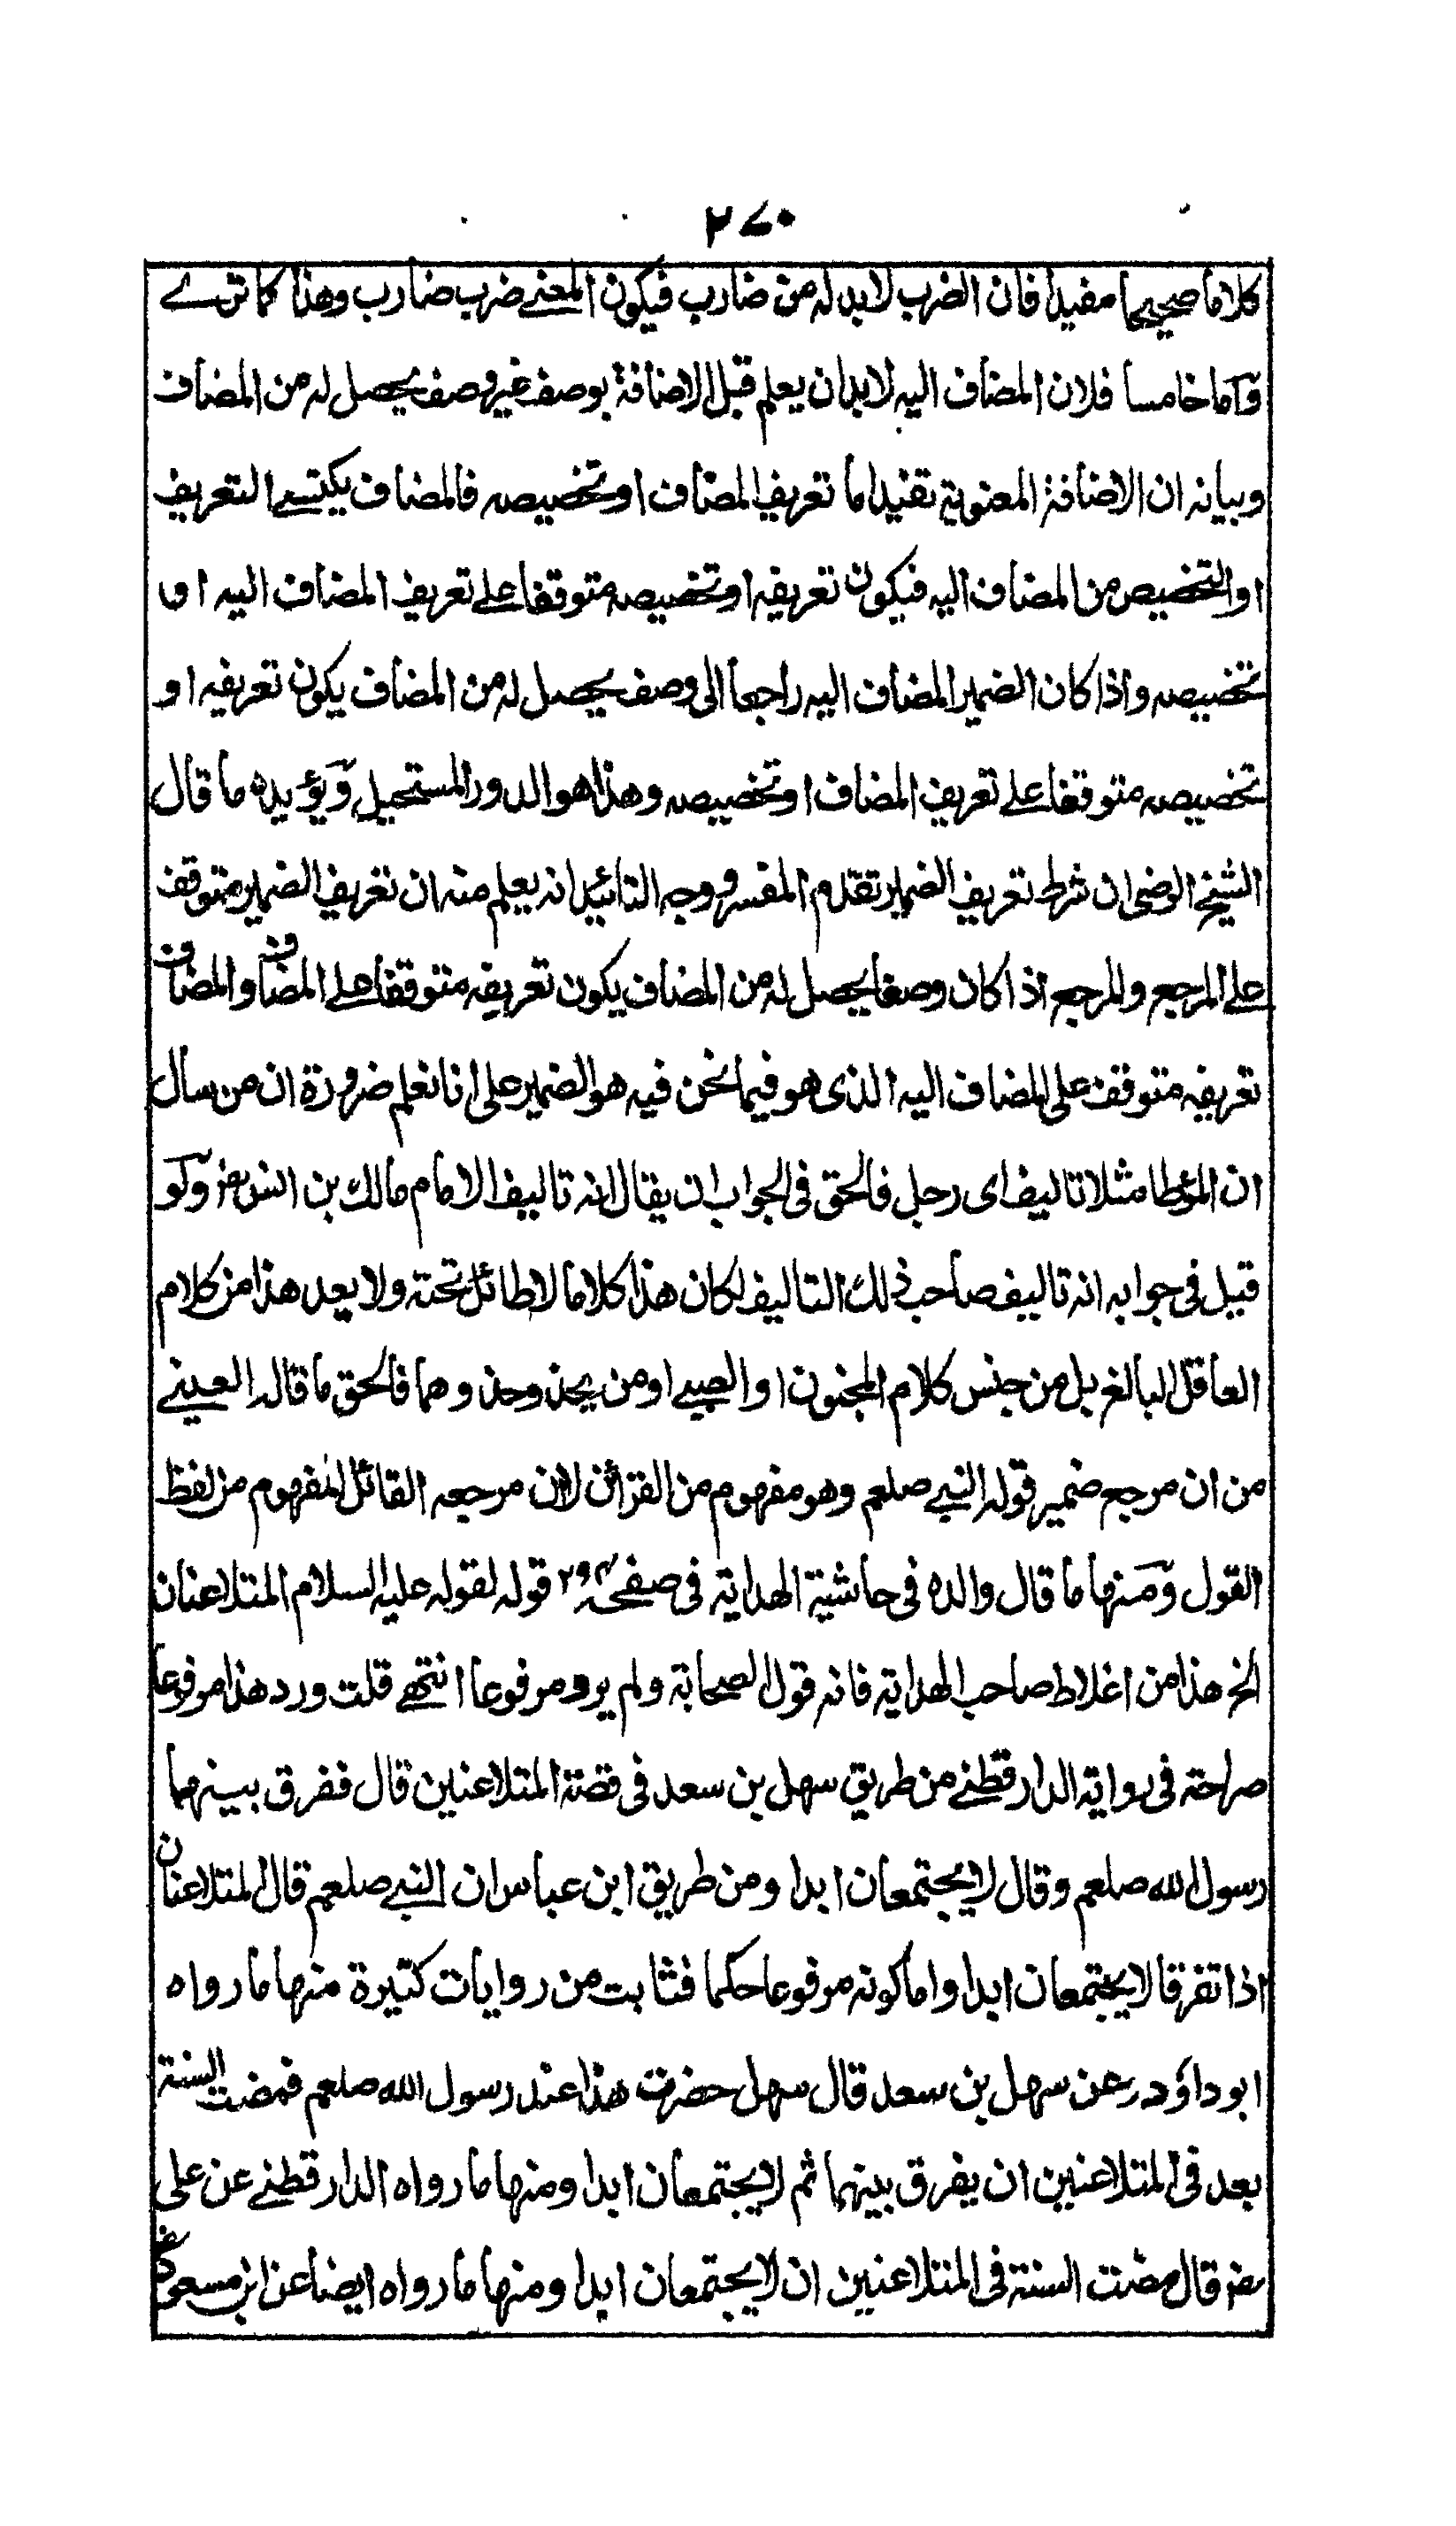 ٢٧٠
كلاما صحيحا مفيدا فان الضرب لابد له من ضارب فيكون المعنے ضرب ضارب وهذا كما ترے
وآما خامسا فلان المضاف اليه لابد ان يعلم قبل الاضافة بوصف غير وصف يحصل له من المضاف
وبيانه ان الاضافة المعنوية تفيد اما تعريف المضاف او تخصيصه فالمضاف يكتسے التعريف
او التخصيص من المضاف اليه فيكون تعريفه او تخصيصه متوقفا علے تعريف المضاف اليه او
تخصيصه واذا كان الضمير المضاف اليه راجعا الى وصف يحصل له من المضاف يكون تعريفه او
تخصيصه متوقفا علے تعريف المضاف او تخصيصه وهذا هو الدور المستحيل ويؤيده ما قال
الشيخ الرضى ان شرط تعريف الضمير تقدم المفسر ووجه التائيد انه يعلم منه ان تعريف الضمير متوقف
علے المرجع والمرجع اذا كان وصفا يحصل له من المضاف يكون تعريفه متوقفا علے المضاف والمضاف
تعريفه متوقف على المضاف اليه الذى هو فيما نحن فيه هو الضمير على انا نعلم ضرورة ان من سأل
ان المؤطا مثلا تاليف اى رجل فالحق فى الجواب ان يقال انه تاليف الامام مالك بن انس رض ولو
قيل فى جوابه انه تاليف صاحب ذلك التاليف لكان هذا كلاما لا طائل تحته ولا يعد هذا من كلام
العاقل البالغ بل من جنس كلام المجنون او الصبے او من يحذو حذوهما فالحق ما قاله العينے
من ان مرجع ضمير قوله النبے صلعم وهو مفهوم من القرائن لان مرجعه القائل المفهوم من لفظ
القول ومنها ما قال والده فى حاشية الهداية فى صفحه قوله لقوله عليه السلام المتلاعنان
الخ هذا من اغلاط صاحب الهداية فانه قول الصحابة ولم يرو مرفوعا انتهے قلت ورد هذا مرفوعا
صراحة فى رواية الدارقطنے من طريق سهل بن سعد فى قصة المتلاعنين قال ففرق بينهما
رسول الله صلعم وقال لا يجتمعان ابدا ومن طريق ابن عباس ان النبے صلعم قال المتلاعنان
اذا تفرقا لا يجتمعان ابدا واما كونه مرفوعا حكما فثابت من روايات كثيرة منها ما رواه
ابو داؤد عن سهل بن سعد قال سهل حضرت هذا عند رسول الله صلعم فمضت السنة
بعد فى المتلاعنين ان يفرق بينهما ثم لا يجتمعان ابدا ومنها ما رواه الدارقطنے عن على
رض قال مضت السنة فى المتلاعنين ان لا يجتمعان ابدا ومنها ما رواه ايضا عن ابن مسعود رض